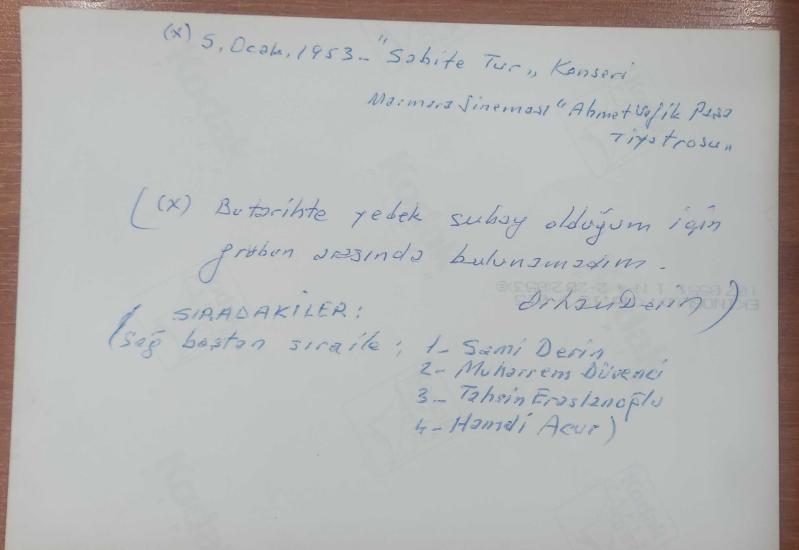 (x) 5. Ocak. 1953 - "Sabite Tur„ Konseri
Marmara Sineması "Ahmet Vefik Paşa
Tiyatrosu„
( (x) Bu tarihte yedek subay olduğum için
grubun arasında bulunamadım.
Orhan Derin )
( SIRADAKİLER :
(Sağ baştan sıraile : 1- Sami Derin
2- Muharrem Düvenci
3- Tahsin Eraslanoğlu
4- Hamdi )
Kodak
Kodak
Kodak